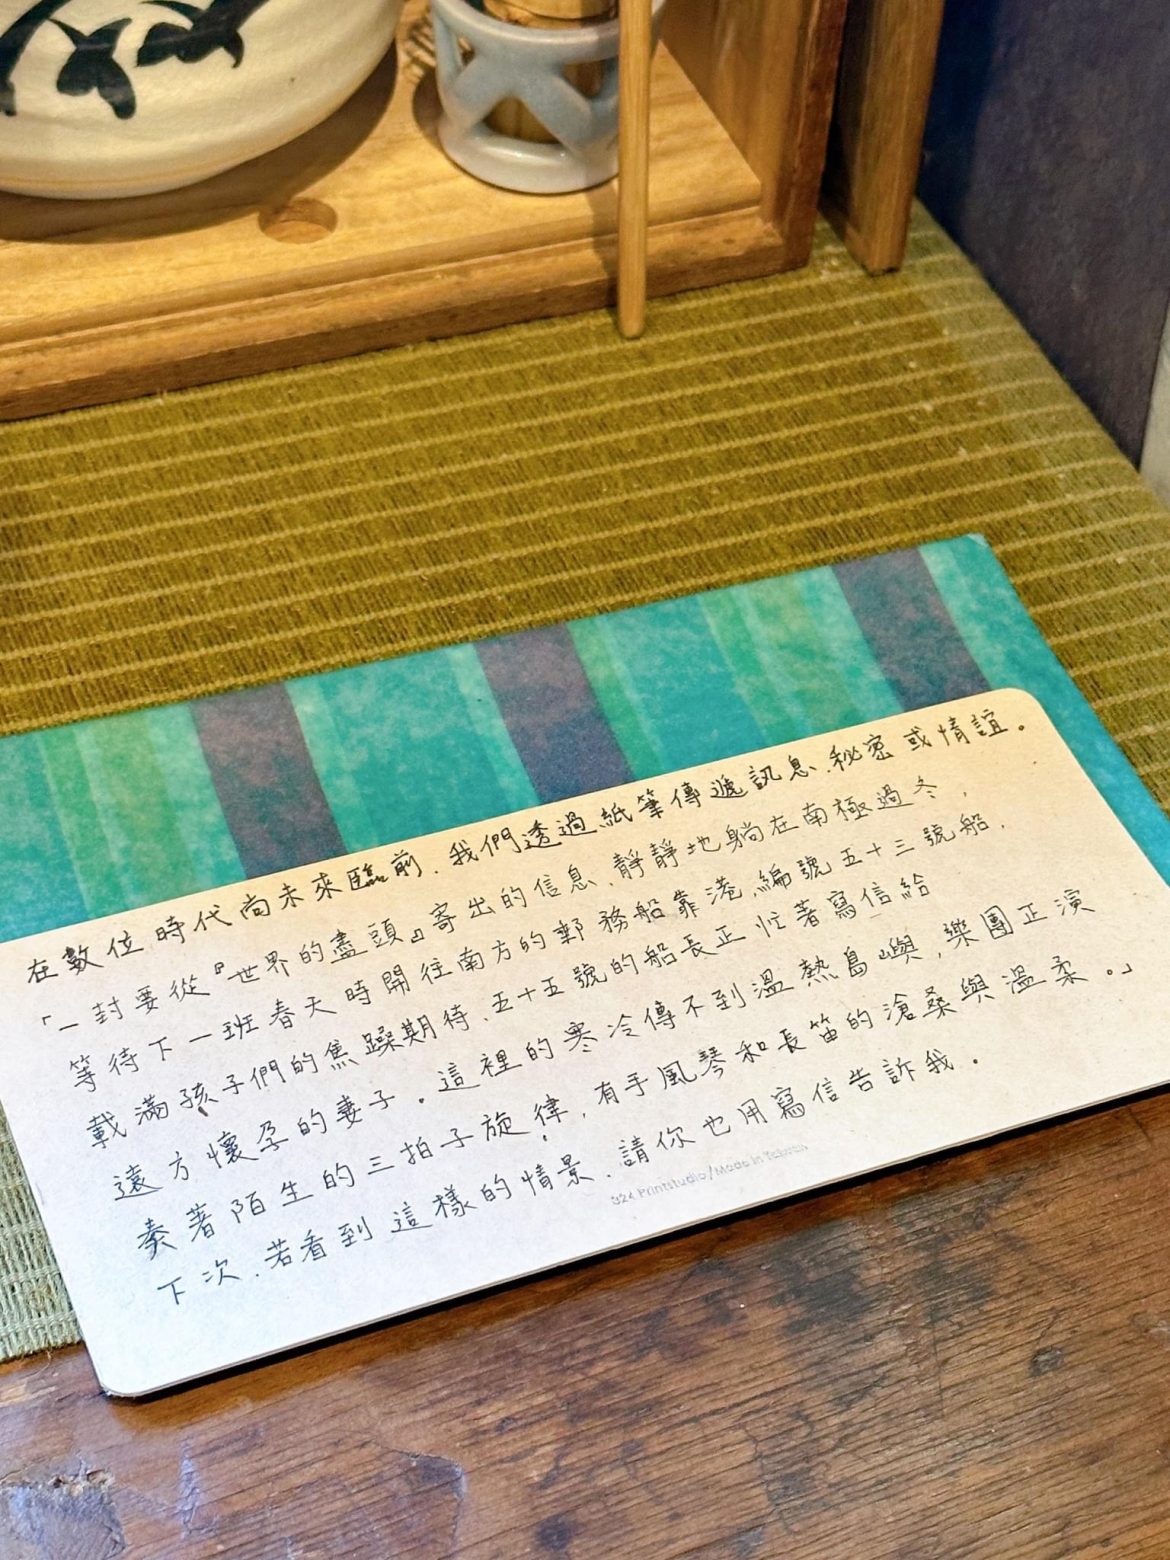 在數位時代尚未來臨前，我們透過紙筆傳遞訊息、秘密或情誼。
「一封要從『世界的盡頭』寄出的信息，靜靜地躺在南極過冬，
等待下一班春天時開往南方的郵務船靠港，編號五十三號船，
載滿孩子們的焦躁期待，五十五號的船長正忙著寫信給
遠方懷孕的妻子。這裡的寒冷傳不到溫熱島嶼，樂團正演
奏著陌生的三拍子旋律，有手風琴和長笛的滄桑與溫柔。」
下次，若看到這樣的情景，請你也用寫信告訴我。
324 Printstudio/Made in Taiwan